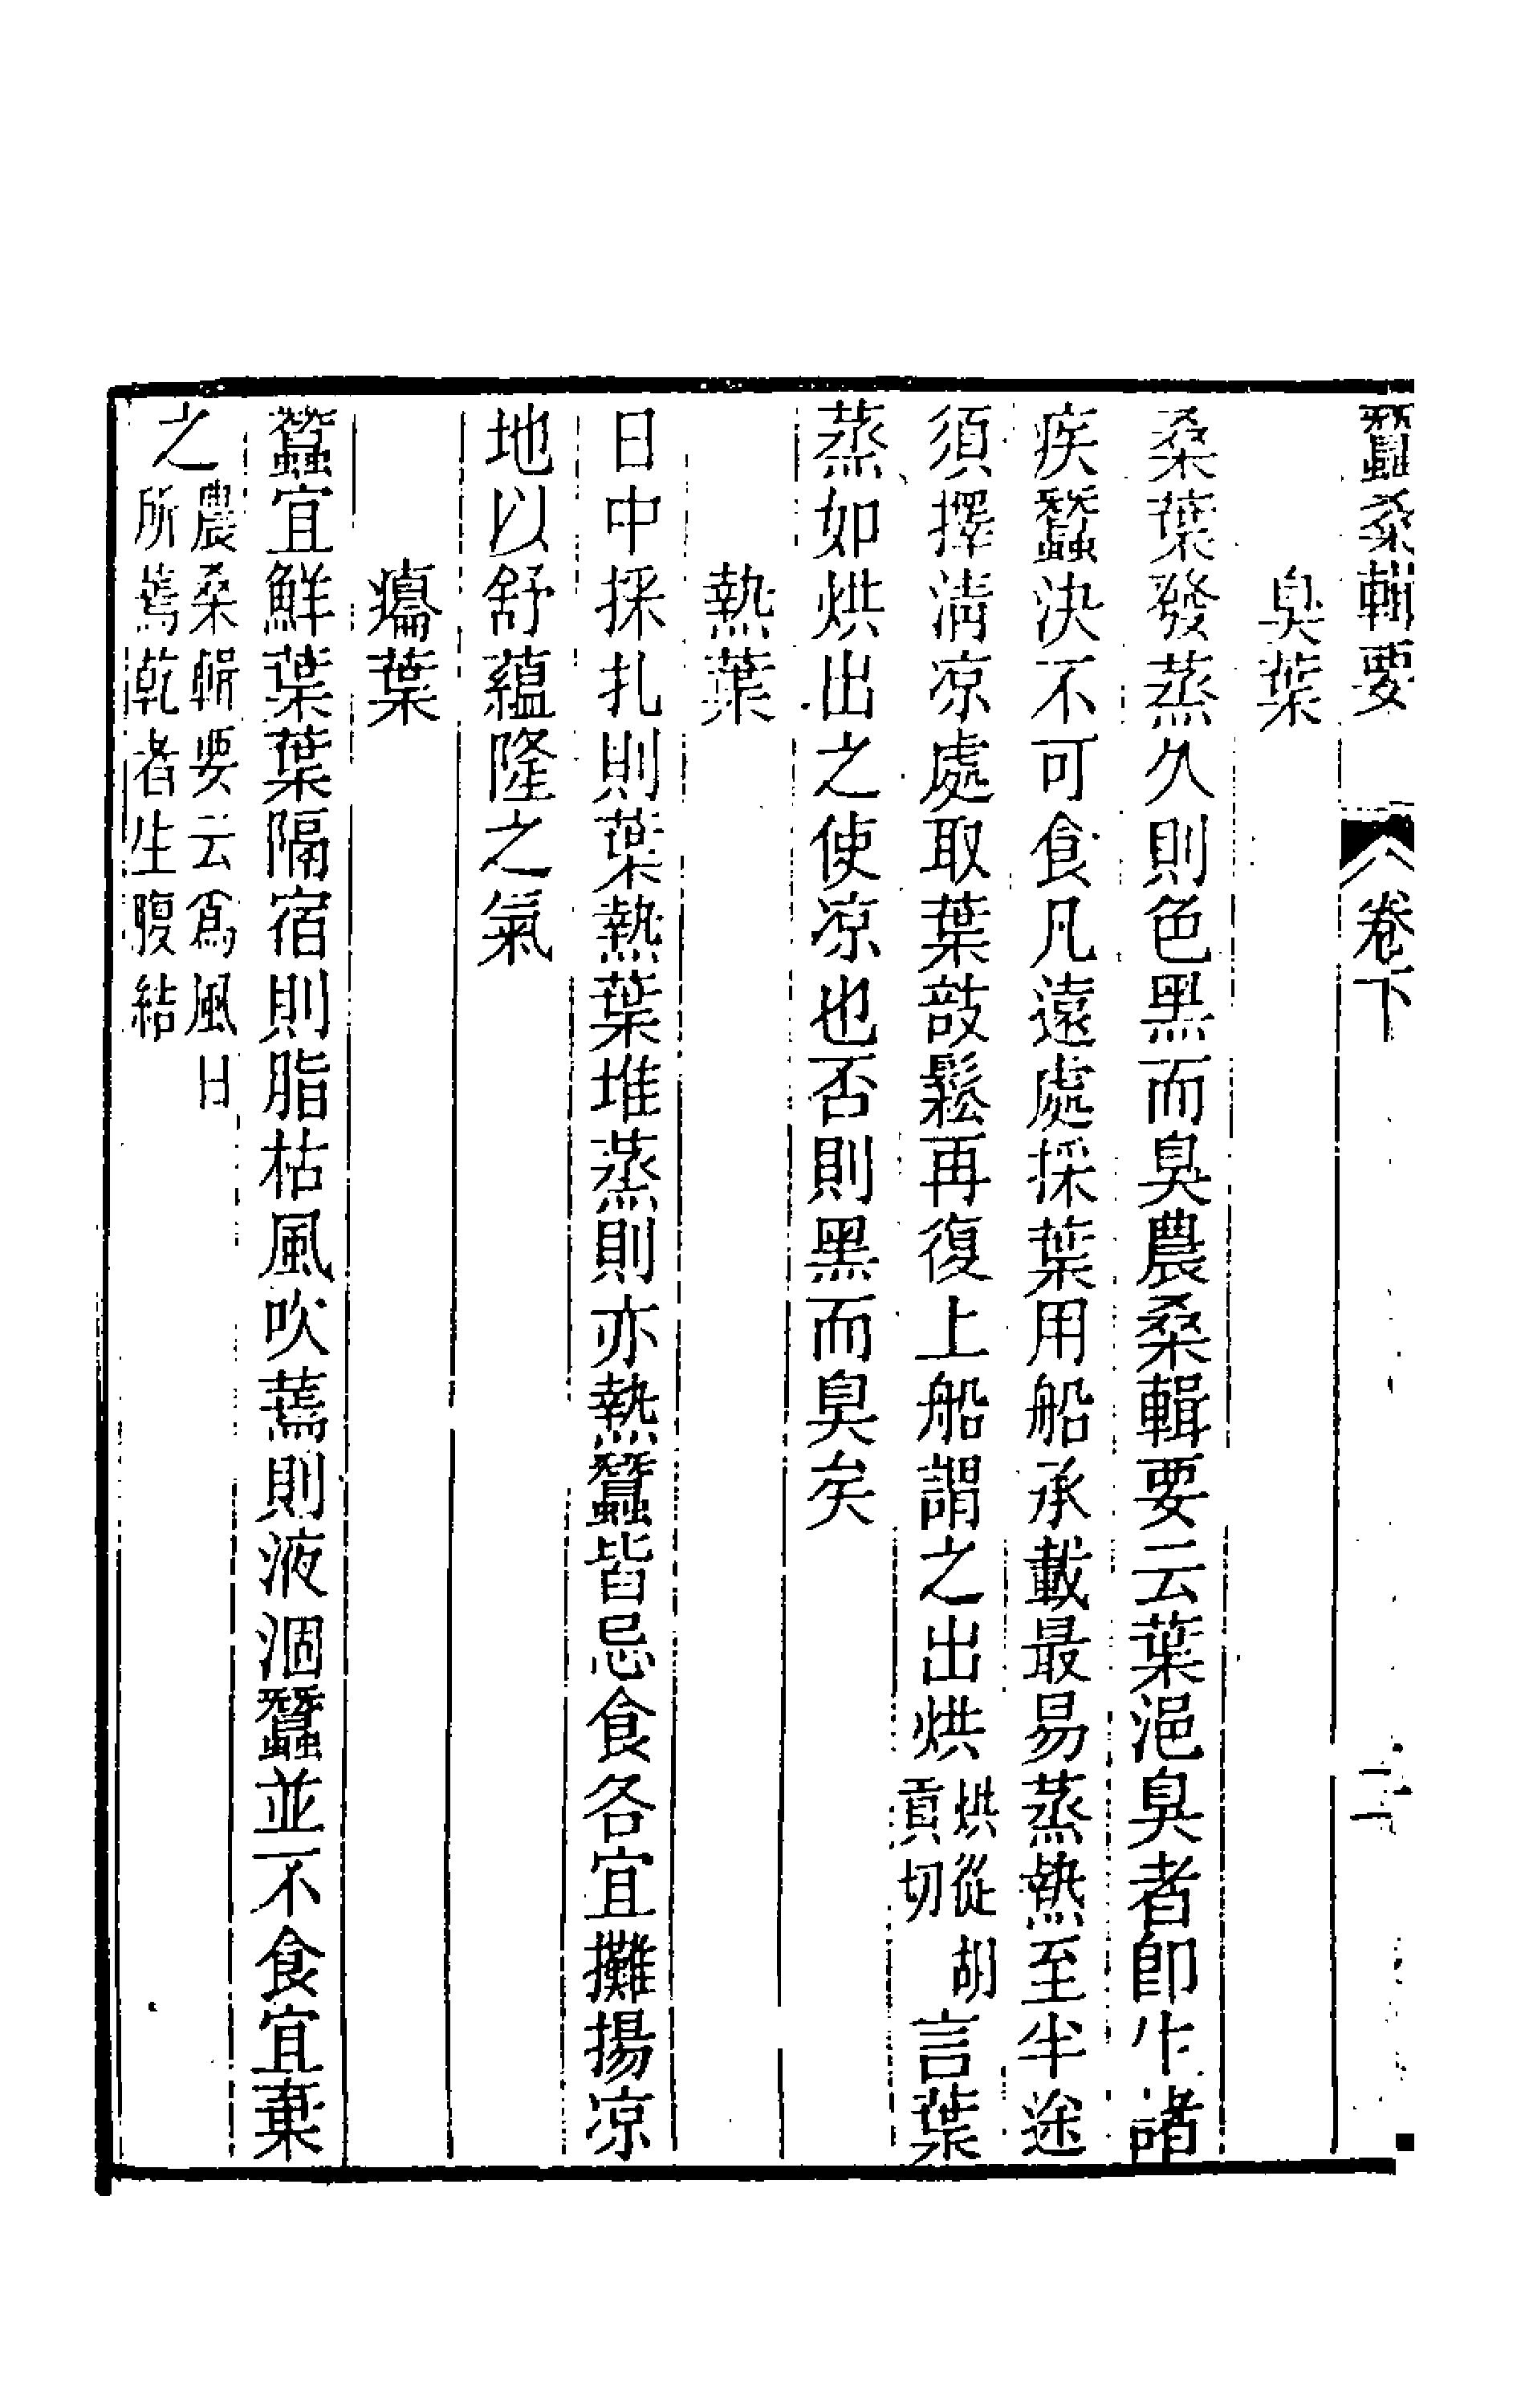 蠶桑輯要 卷下 二
臭葉
桑葉發蒸久則色黑而臭農桑輯要云葉浥臭者卽生諸
疾蠶決不可食凡遠處採葉用船承載最易蒸熱至半途
須擇清凉處取葉鼓鬆再復上船謂之出烘烘從胡貢切言葉
蒸如烘出之使凉也否則黑而臭矣
熱葉
日中採扎則葉熱葉堆蒸則亦熱蠶皆忌食各宜攤揚凉
地以舒蘊隆之氣
葉
蠶宜鮮葉葉隔宿則脂枯風吹蔫則液涸蠶並不食宜棄
之農桑輯要云爲風日所蔫乾者生腹結